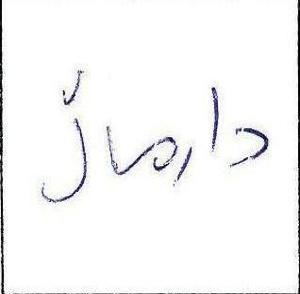 دارماڵ